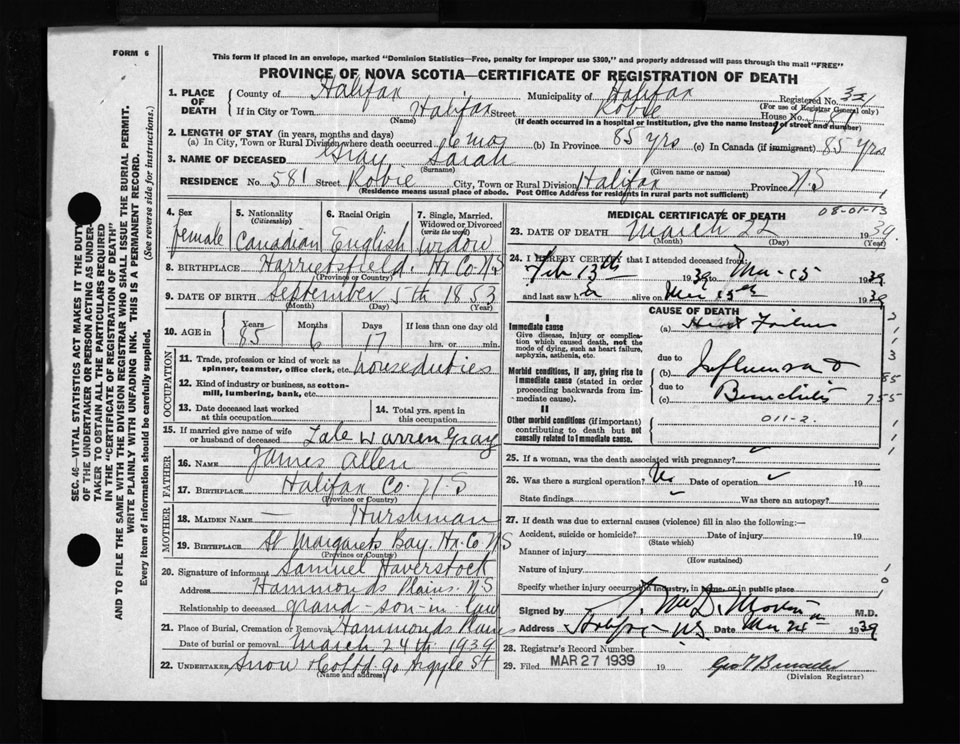 FORM 6
This form if placed in an envelope, marked "Dominion Statistics—Free, penalty for improper use $300," and properly addressed will pass through the mail "FREE"
PROVINCE OF NOVA SCOTIA—CERTIFICATE OF REGISTRATION OF DEATH
SEC. 46—VITAL STATISTICS ACT MAKES IT THE DUTY
OF THE UNDERTAKER OR PERSON ACTING AS UNDER-
TAKER TO OBTAIN ALL THE PARTICULARS REQUIRED
IN THE "CERTIFICATE OF REGISTRATION OF DEATH"
AND TO FILE THE SAME WITH THE DIVISION REGISTRAR WHO SHALL ISSUE THE BURIAL PERMIT.
WRITE PLAINLY WITH UNFADING INK. THIS IS A PERMANENT RECORD.
Every item of information should be carefully supplied. (See reverse side for instructions.)
1. PLACE OF DEATH County of Halifax Municipality of Halifax Registered No. 321
(For use of Registrar General only)
If in City or Town Halifax Street Robie House No. 581
(Name) (If death occurred in a hospital or institution, give the name instead of street and number)
2. LENGTH OF STAY (in years, months and days)
(a) In City, Town or Rural Division where death occurred 6 mos (b) In Province 85 yrs (c) In Canada (if immigrant) 85 yrs
3. NAME OF DECEASED Gray Sarah
(Surname) (Given name or names)
RESIDENCE No. 581 Street Robie City, Town or Rural Division Halifax Province N.S
(Residence means usual place of abode. Post Office Address for residents in rural parts not sufficient)
4. Sex female 5. Nationality (Citizenship) Canadian 6. Racial Origin English 7. Single, Married, Widowed or Divorced (write the word) widow
8. BIRTHPLACE Harrietsfield. Hx Co N S
(Province or Country)
9. DATE OF BIRTH September 5th 1853
(Month) (Day) (Year)
10. AGE in Years 85 Months 6 Days 17 If less than one day old
hrs. or min.
OCCUPATION
11. Trade, profession or kind of work as spinner, teamster, office clerk, etc. house duties
12. Kind of industry or business, as cotton-mill, lumbering, bank, etc.
13. Date deceased last worked at this occupation
14. Total yrs. spent in this occupation
15. If married give name of wife or husband of deceased Late Warren Gray
FATHER
16. NAME James Allen
17. BIRTHPLACE Halifax Co. N S
(Province or Country)
MOTHER
18. MAIDEN NAME — Hurshman
19. BIRTHPLACE St Margarets Bay. Hx. Co N S
(Province or Country)
20. Signature of informant Samuel Haverstock
Address Hammonds Plains. N S
Relationship to deceased grand-son-in law
21. Place of Burial, Cremation or Removal Hammonds Plains
Date of burial or removal March 24th 1939
22. UNDERTAKER Snow & Co Ltd 90 Argyle St
(Name and address)
MEDICAL CERTIFICATE OF DEATH
08-01-13
23. DATE OF DEATH March 22 1939.
(Month) (Day) (Year)
24. I HEREBY CERTIFY that I attended deceased from
Feb 13th 1939 to Mar 15 1939
and last saw her alive on Mar 15th 1939
CAUSE OF DEATH
I
Immediate cause
Give disease, injury or complication which caused death, not the mode of dying, such as heart failure, asphyxia, asthenia, etc.
(a) Heart Failure
due to
Morbid conditions, if any, giving rise to immediate cause (stated in order proceeding backwards from immediate cause).
(b) Influenza &
due to
(c) Bronchitis
II
Other morbid conditions (if important) contributing to death but not causally related to immediate cause.
011-2.
25. If a woman, was the death associated with pregnancy?
26. Was there a surgical operation? No Date of operation 19
State findings Was there an autopsy?
27. If death was due to external causes (violence) fill in also the following:—
Accident, suicide or homicide? Date of injury 19
(State which)
Manner of injury
(How sustained)
Nature of injury
Specify whether injury occurred in industry, in home, or in public place
Signed by M.D.
Address Halifax N.S. Date Mar 24th 1939
28. Registrar's Record Number
29. Filed MAR 27 1939 19
(Division Registrar)